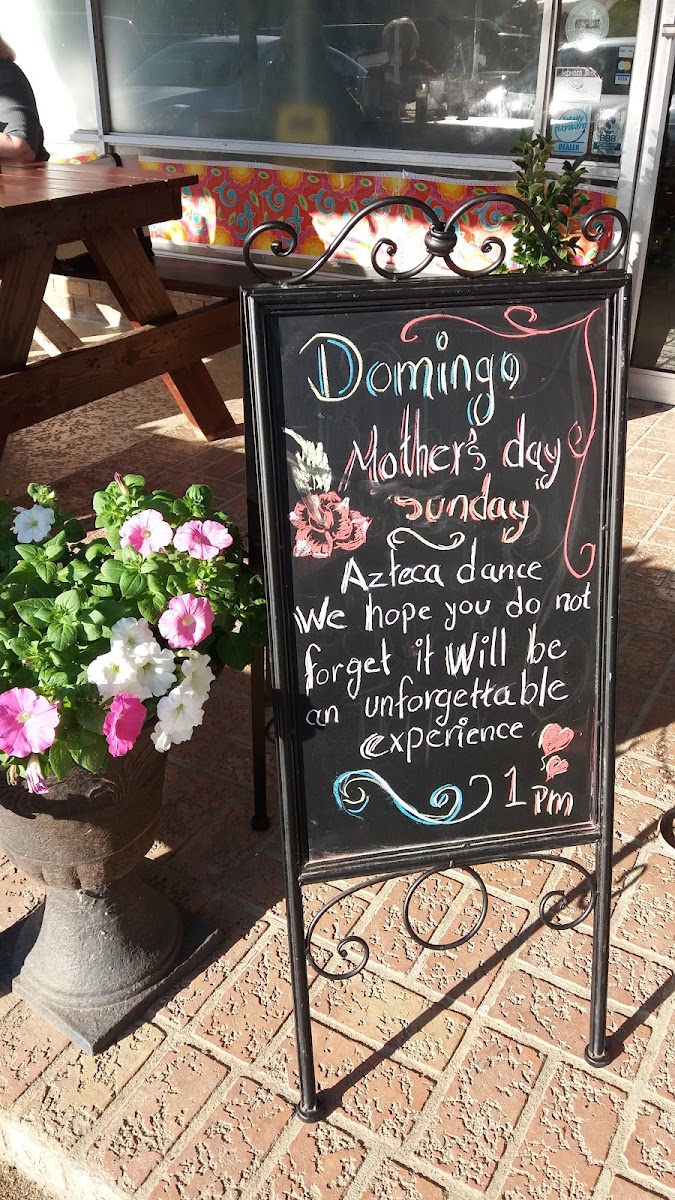 MEMBER
Hayward
DEALER
VISA
Domingo
Mother's day
sunday
Azteca dance
We hope you do not
forget it Will be
an unforgettable
experience
1 Pm